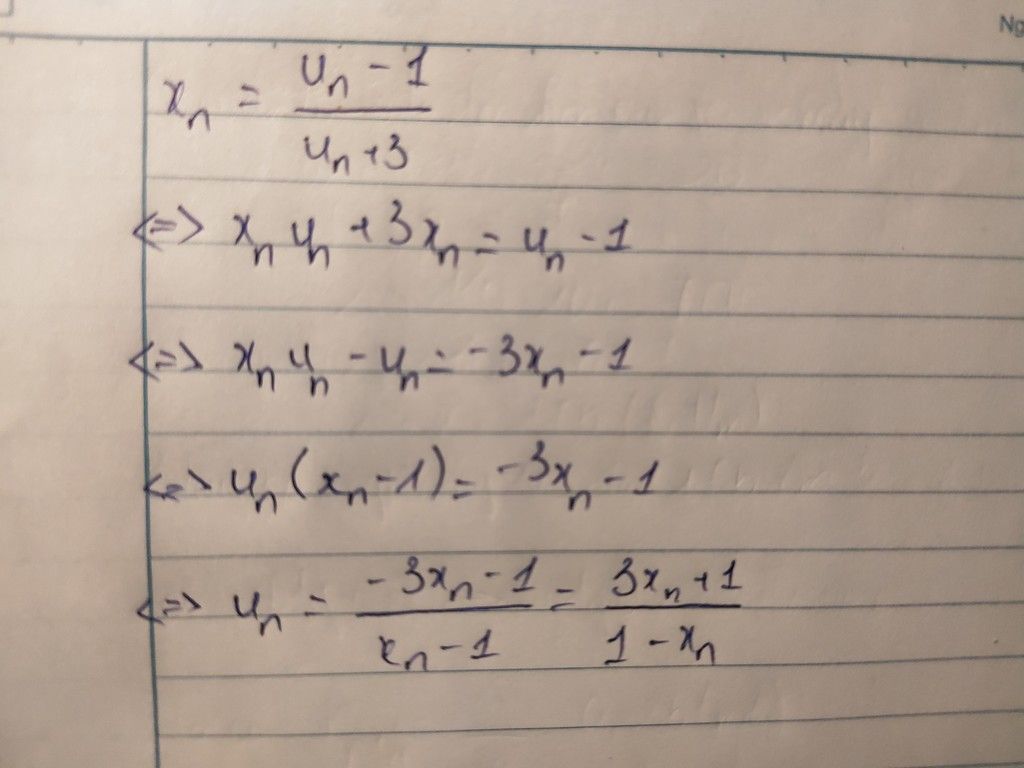 Ng
xₙ = (uₙ - 1)/(uₙ + 3)
<=> xₙ uₙ + 3xₙ = uₙ - 1
<=> xₙ uₙ - uₙ = -3xₙ - 1
<=> uₙ (xₙ - 1) = -3xₙ - 1
<=> uₙ = (-3xₙ - 1)/(xₙ - 1) = (3xₙ + 1)/(1 - xₙ)